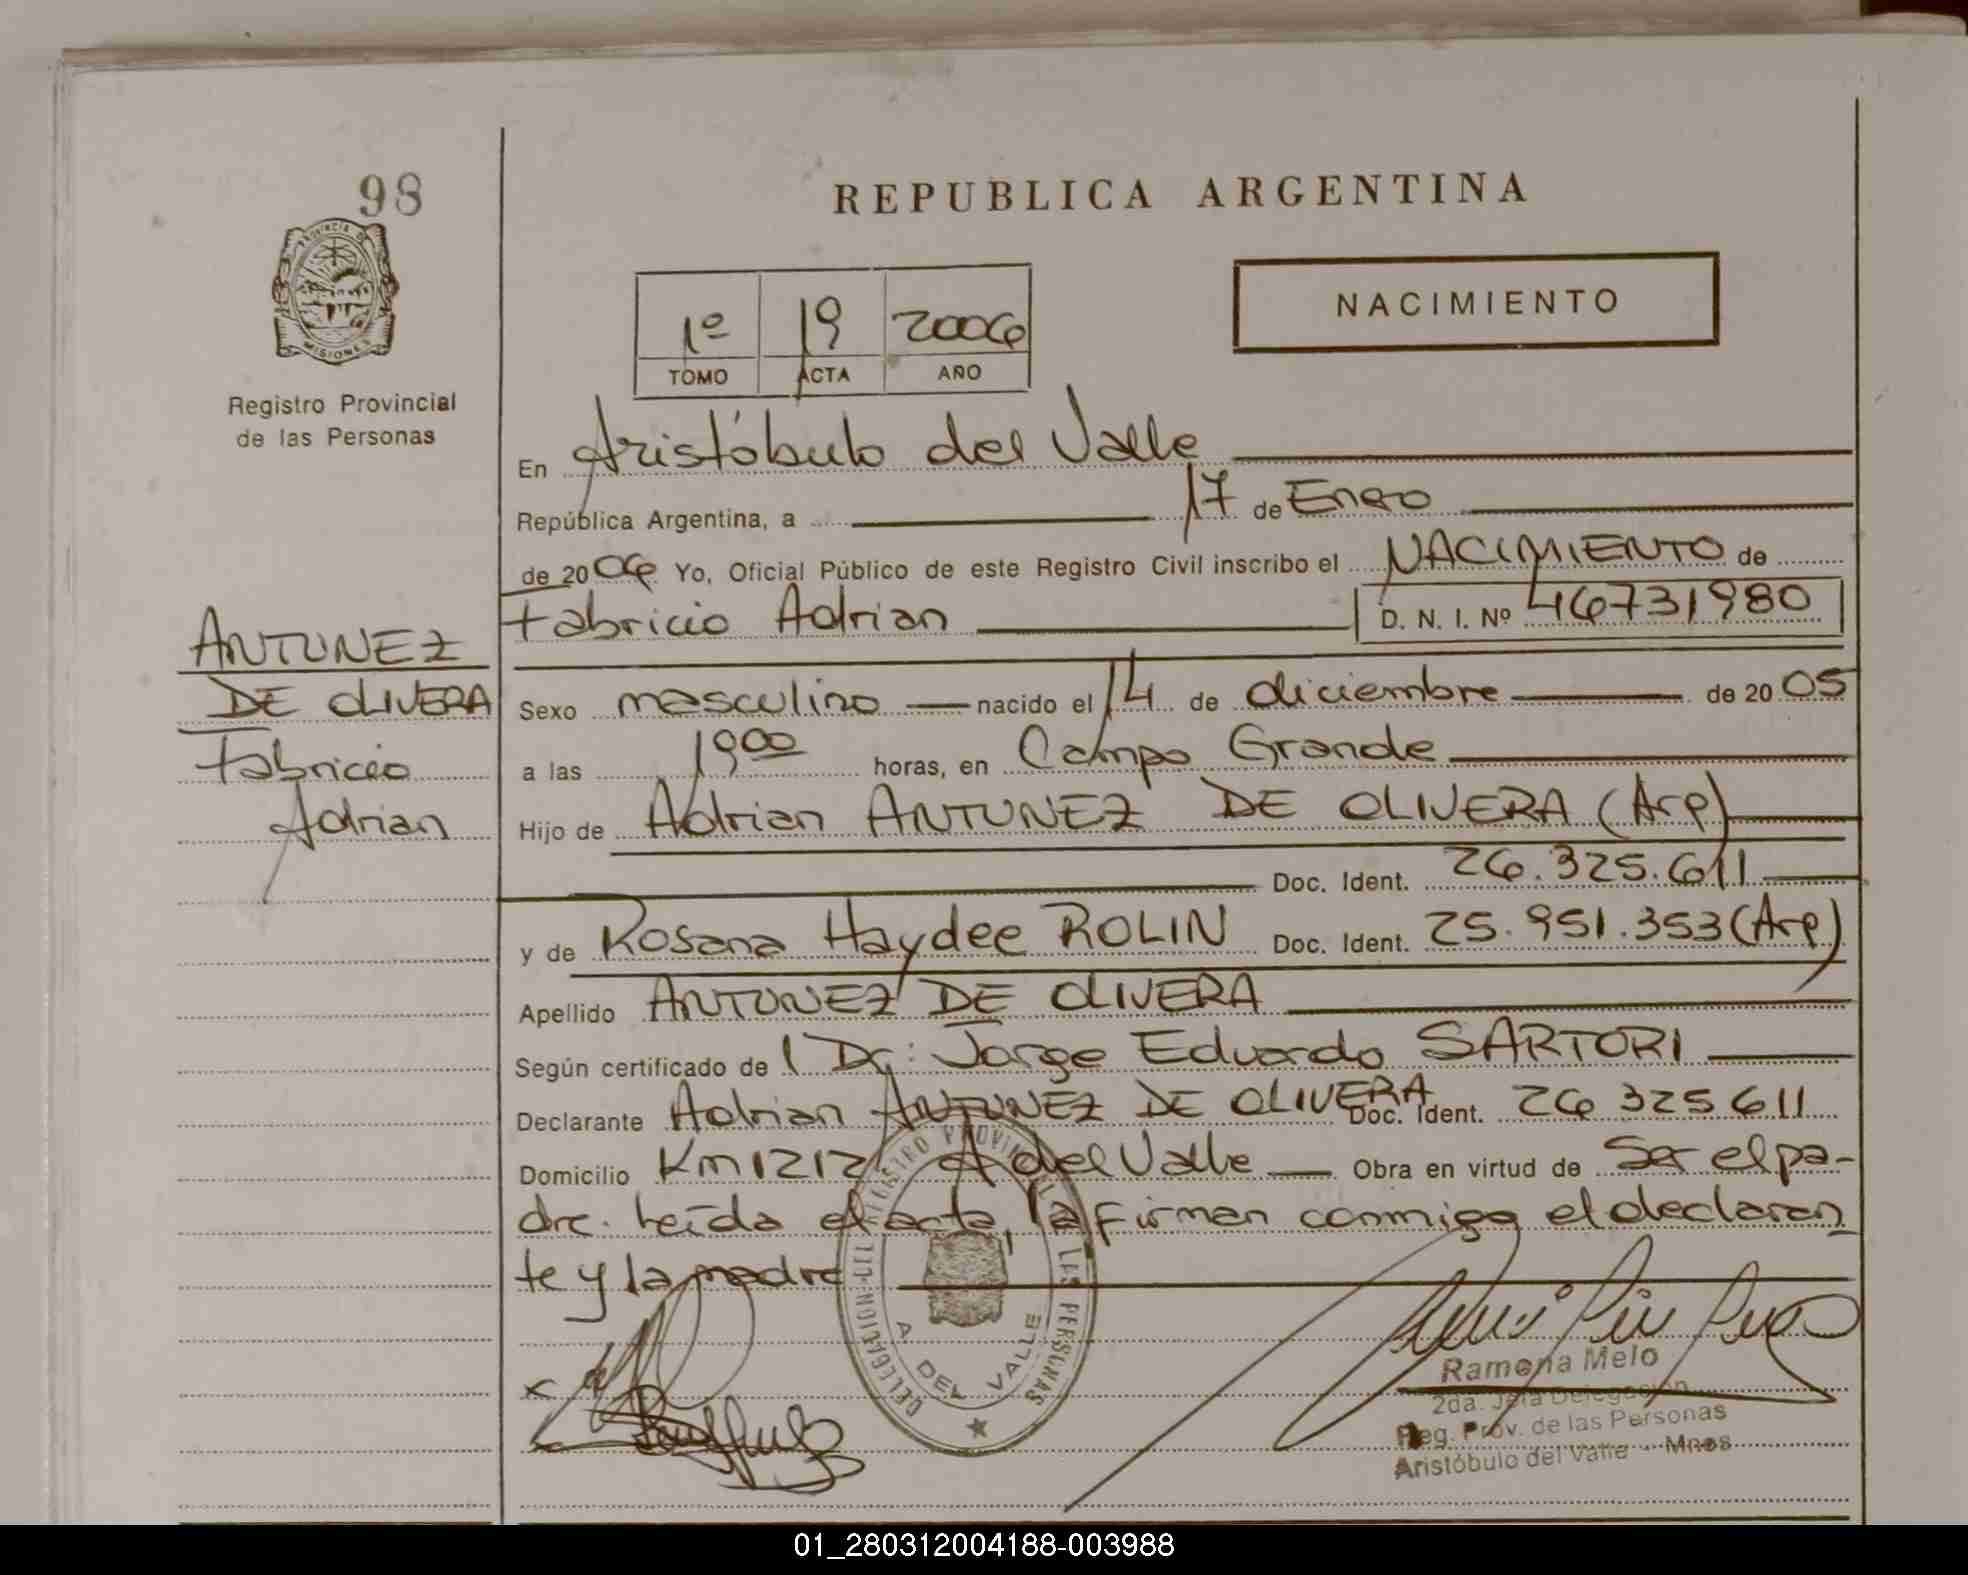 98
REPUBLICA ARGENTINA
PROVINCIA DE
MISIONES
Registro Provincial
de las Personas
NACIMIENTO
1º 19 2006
TOMO ACTA AÑO
En Aristóbulo del Valle
República Argentina, a 17 de Enero
de 2006 Yo, Oficial Público de este Registro Civil inscribo el NACIMIENTO de
Fabricio Adrian D. N. I. Nº 46731980
ANTUNEZ
DE OLIVERA
Fabricio
Adrian
Sexo masculino nacido el 14 de diciembre de 2005
a las 19 00 horas, en Campo Grande
Hijo de Adrian ANTUNEZ DE OLIVERA (Arg)
Doc. Ident. 26.325.611
y de Rosana Haydee ROLIN Doc. Ident. 25.951.353 (Arg)
Apellido ANTUNEZ DE OLIVERA
Según certificado de l Dr: Jorge Eduardo SARTORI
Declarante Adrian ANTUNEZ DE OLIVERA Doc. Ident. 26 325 611
Domicilio Km 1212 A del Valle Obra en virtud de Ser el pa-
dre. Leída el acta, la firman conmigo el declaran
te y la madre
REGISTRO PROVINCIAL DE LAS PERSONAS
DELEGACION
A DEL VALLE
Ramona Melo
2da. Jefa Delegación
Reg. Prov. de las Personas
Aristóbulo del Valle - Mnes
01_280312004188-003988